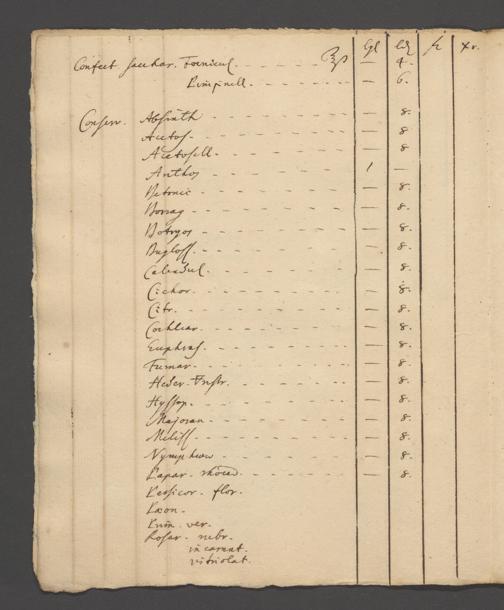 Confect sacchar. Foenicul. - - - - - ℥ß — 4.
Pimpinell. - - - - - — 6.
Conserv. Absinth - - - - - — 8.
Acetos. - - - - - — 8
Acetosell. - - - - - — 8
Anthos - - - - - 1 —
Betonic - - - - - — 8.
Borrag - - - - - — 8.
Botryos - - - - - — 8.
Bugloss. - - - - - — 8.
Calendul. - - - - - — 8.
Cichor. - - - - - — 8.
Citr. - - - - - — 8.
Cochlear. - - - - - — 8.
Euphras. - - - - - — 8.
Fumar. - - - - - — 8.
Heder. Trstr. - - - - - — 8.
Hyssop. - - - - - — 8.
Majoran. - - - - - — 8.
Meliss. - - - - - — 8.
Nymphaeae - - - - - — 8.
Papav. rhoead. - - - - - — 8.
Persicor. flor.
Paeon.
Prim. ver.
Rosar. rubr.
incarnat.
vitriolat.